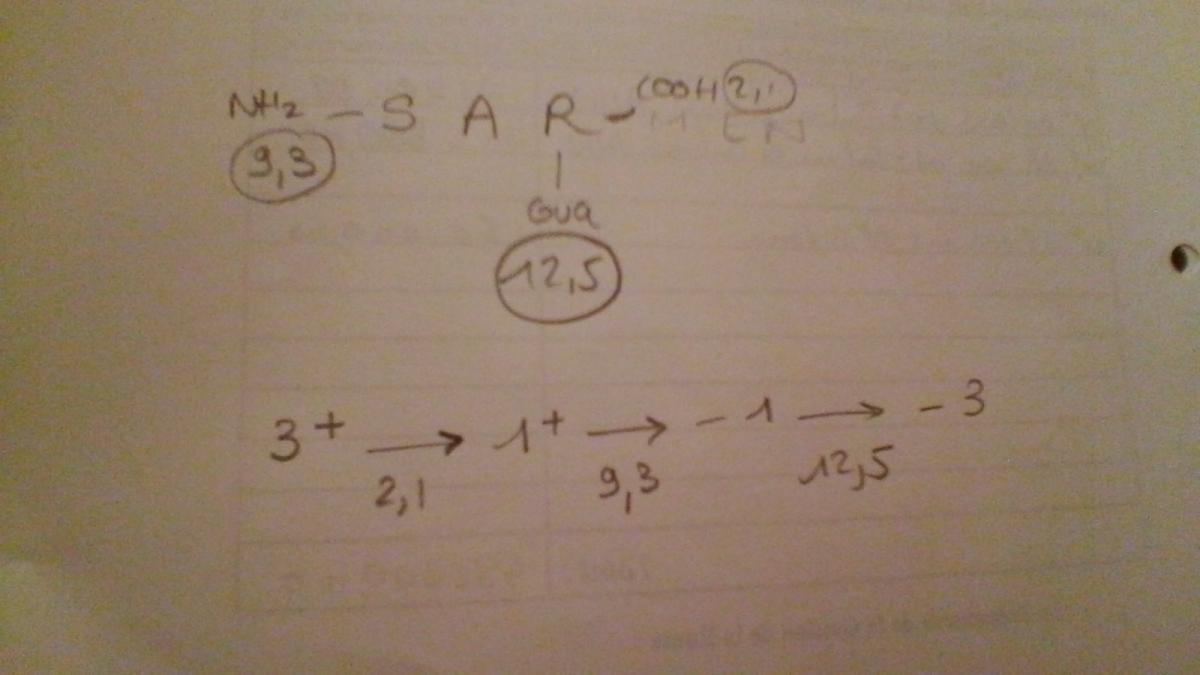 NH2 - S A R - COOH 2,1
9,3
Gua
12,5
3+ → 1+ → -1 → -3
2,1 9,3 12,5